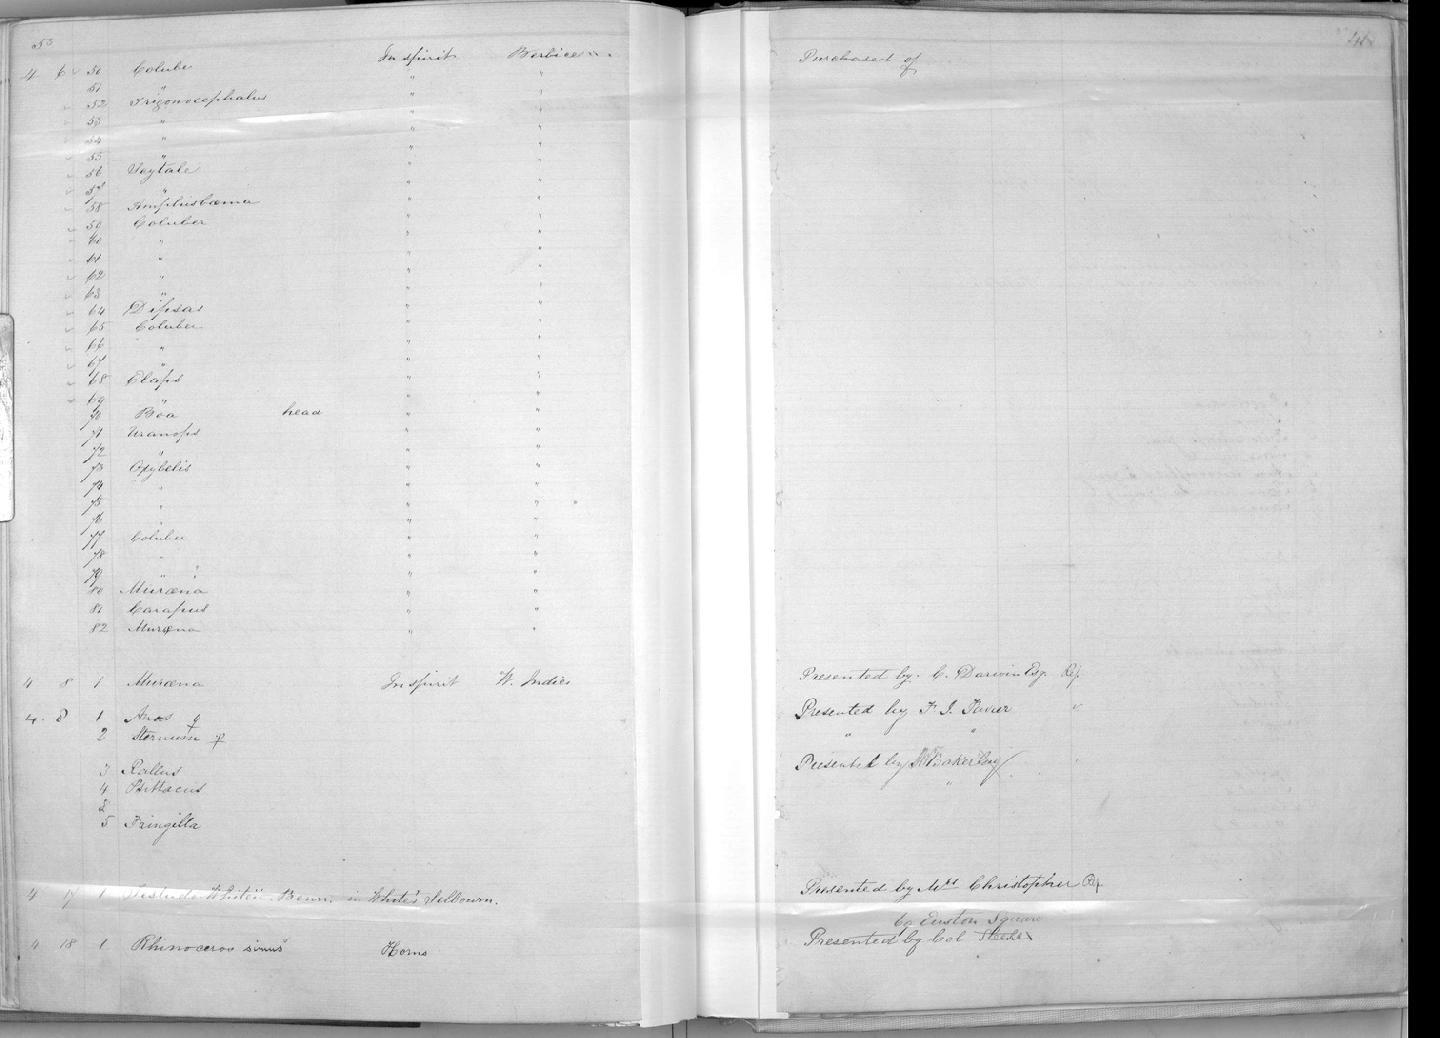 53
4 6 50 Colube In spirit Berbice Purchased of
51 " " "
52 Trigonocephalus " "
53 " " "
54 " " "
55 " " "
56 Scytale " "
57 " " "
58 Amphisbaena " "
59 Coluber " "
60 " " "
61 " " "
62 " " "
63 " " "
64 Dipsas " "
65 Coluber " "
66 " " "
67 " " "
68 Elaps " "
69 " " "
70 Boa head " "
71 Uranops " "
72 " " "
73 Oxybelis " "
74 " " "
75 " " "
76 " " "
77 Coluber " "
78 " " "
79 " " "
80 Muraena " "
81 Carapus " "
82 Muraena " "
4 8 1 Muraena In spirit W. Indies Presented by C. Darwin Esq.
4 8 1 Anas ♀ Presented by F. J. "
2 ♀ " "
3 Rallus Presented by Baker Esq
4 Psittacus "
5 Fringilla
4 17 1 Testudo Whiteii Benn. in White's Selbourn. Presented by Mrs Christopher
Euston Square
4 18 1 Rhinoceros simus Horns Presented by Col